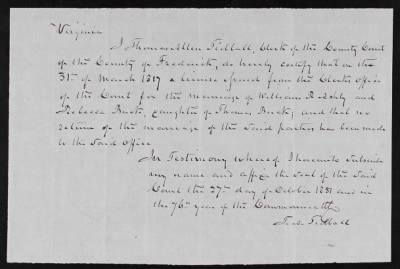 Virginia
I Thomas Allen Tidball, Clerk of the County Court
of the County of Frederick, do hereby certify that on the
31st of March 1817 a license issued from the Clerks Office
of the Court for the marriage of William R Ashby and
Rebecca Buck, daughter of Thomas Buck, and that no
return of the marriage of the said parties has been made
to the said Office.
In Testimony whereof I hereunto subscribe
my name and affix the seal of the said
Court the 27th day of October 1851 and in
the 76th year of the Commonwealth
T. A. Tidball